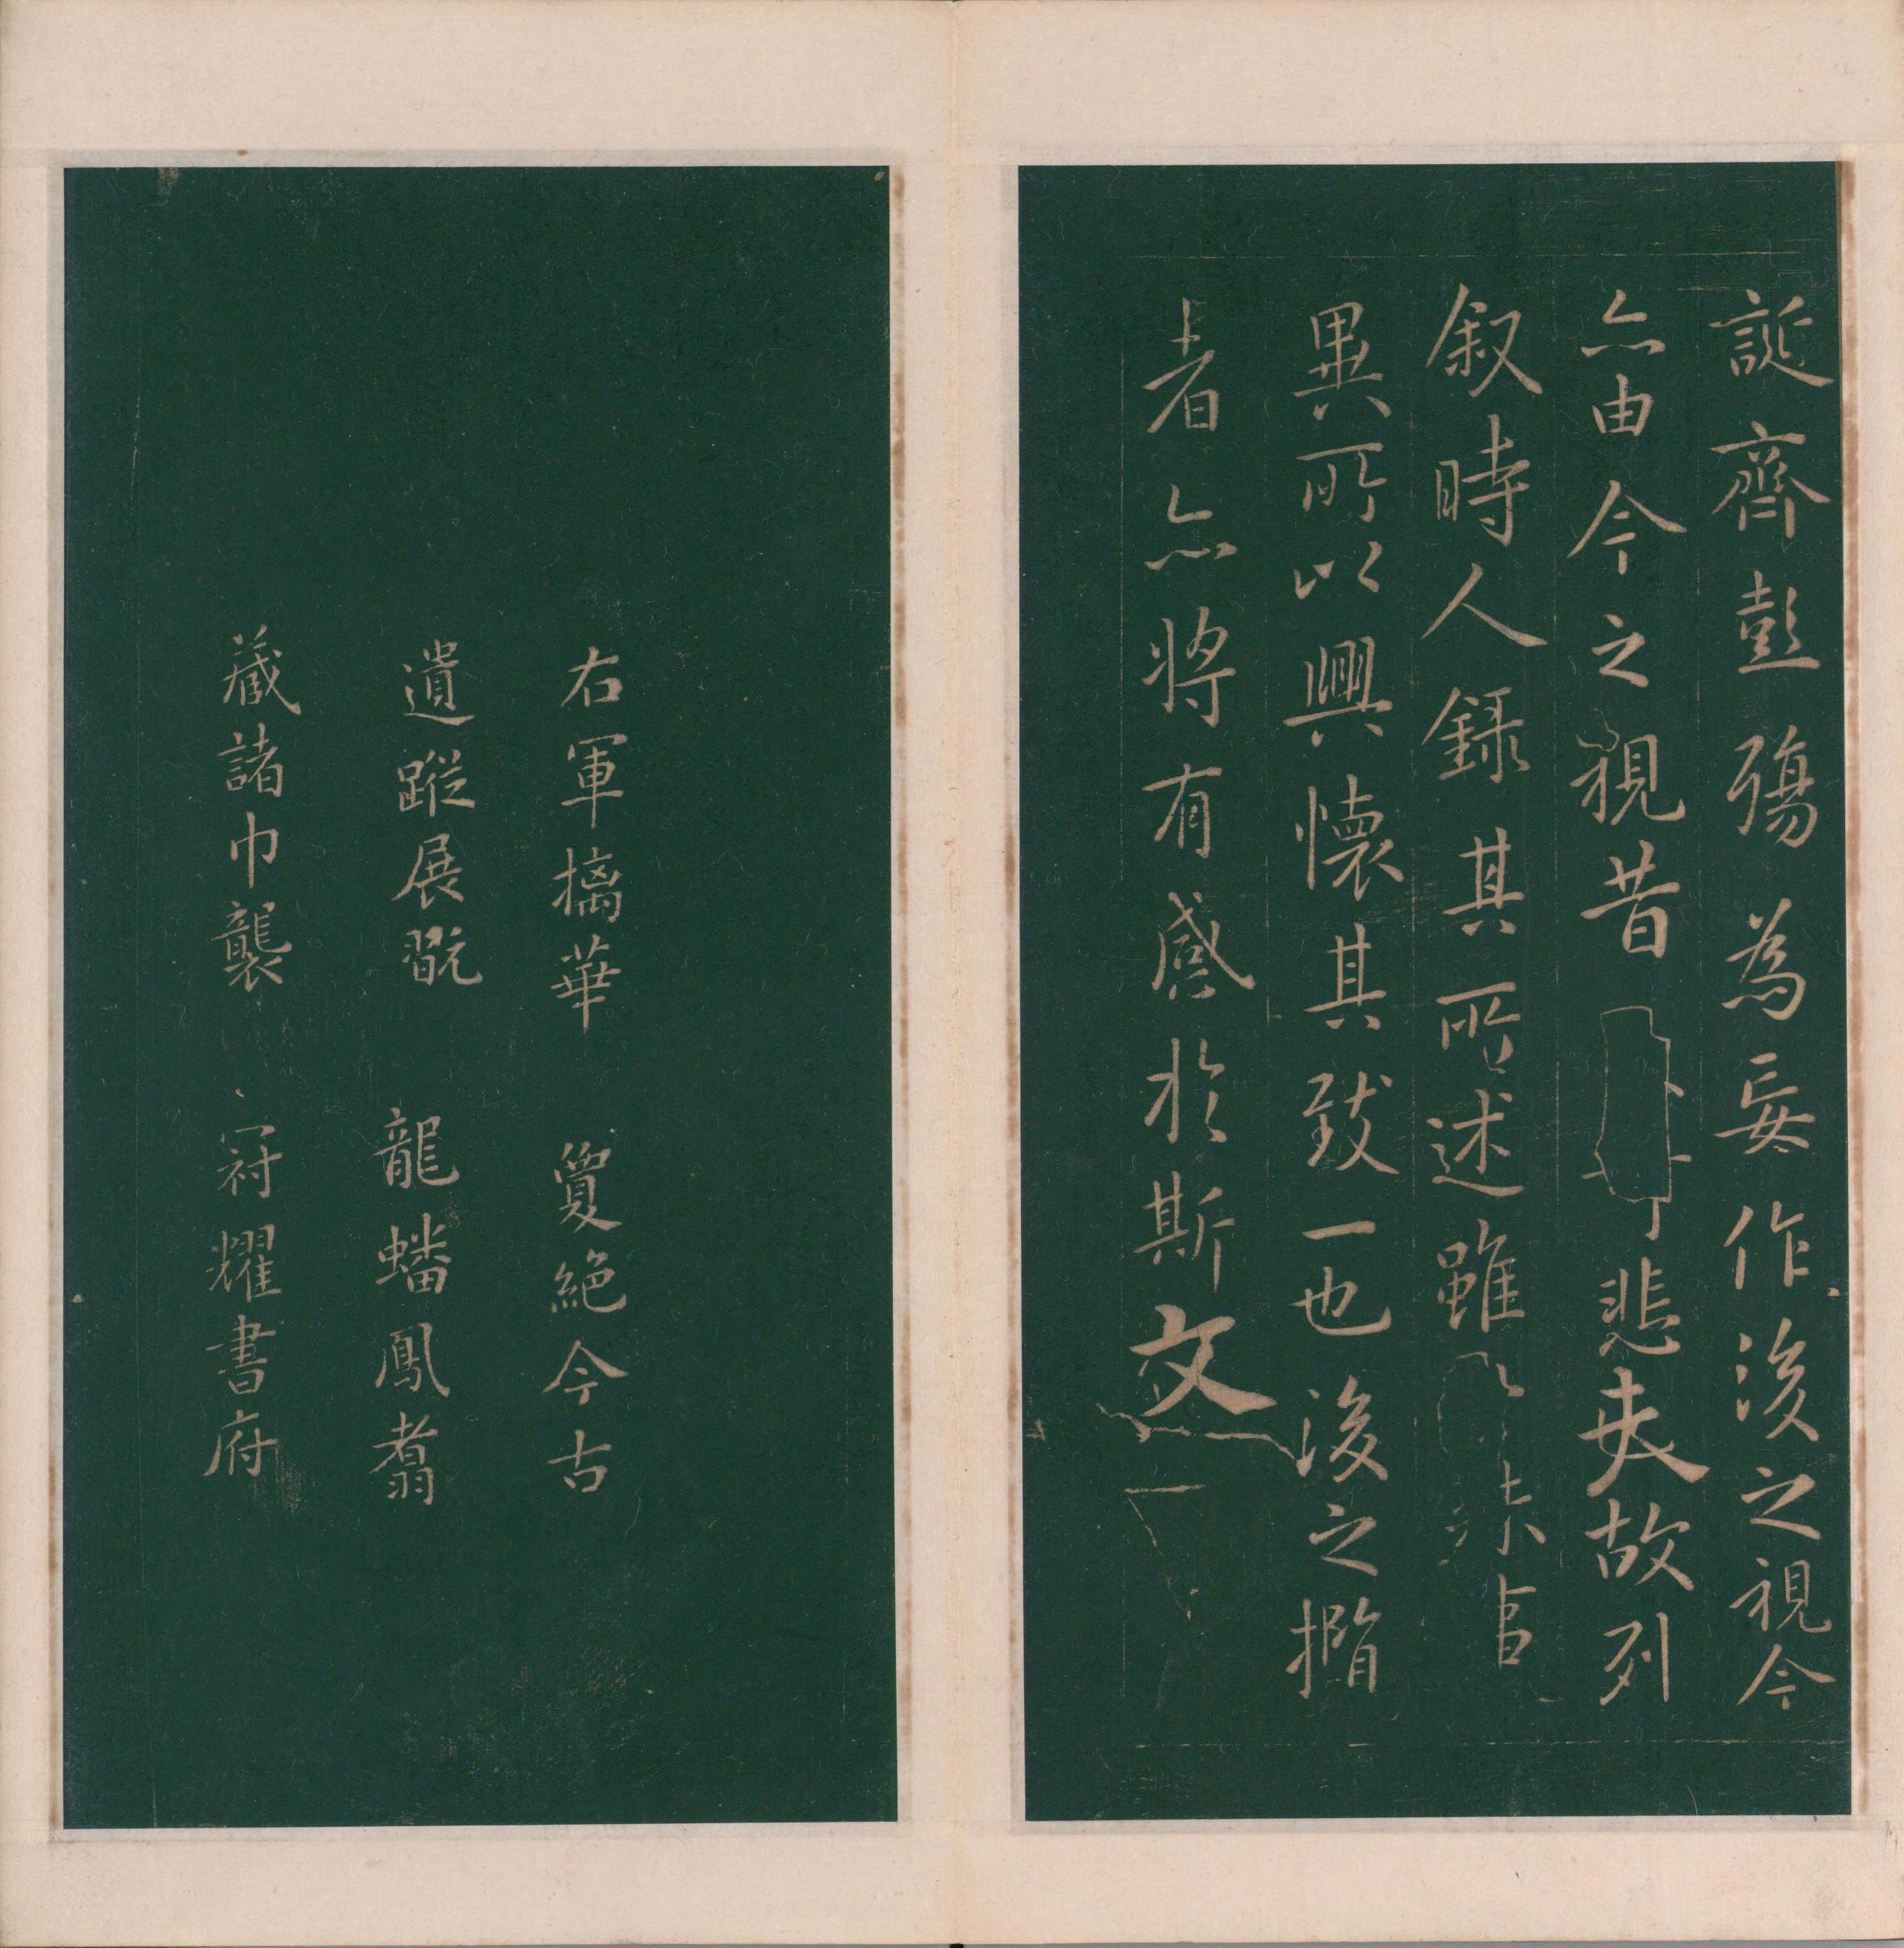 誕齊彭殤為妄作後之視今
亦由今之視昔悲夫故列
叙時人録其所述雖
異所以興懷其致一也後之攬
者亦將有感於斯文
右軍摛華 敻絶今古
遺蹤展翫 龍蟠鳳翥
藏諸巾襲 冠耀書府